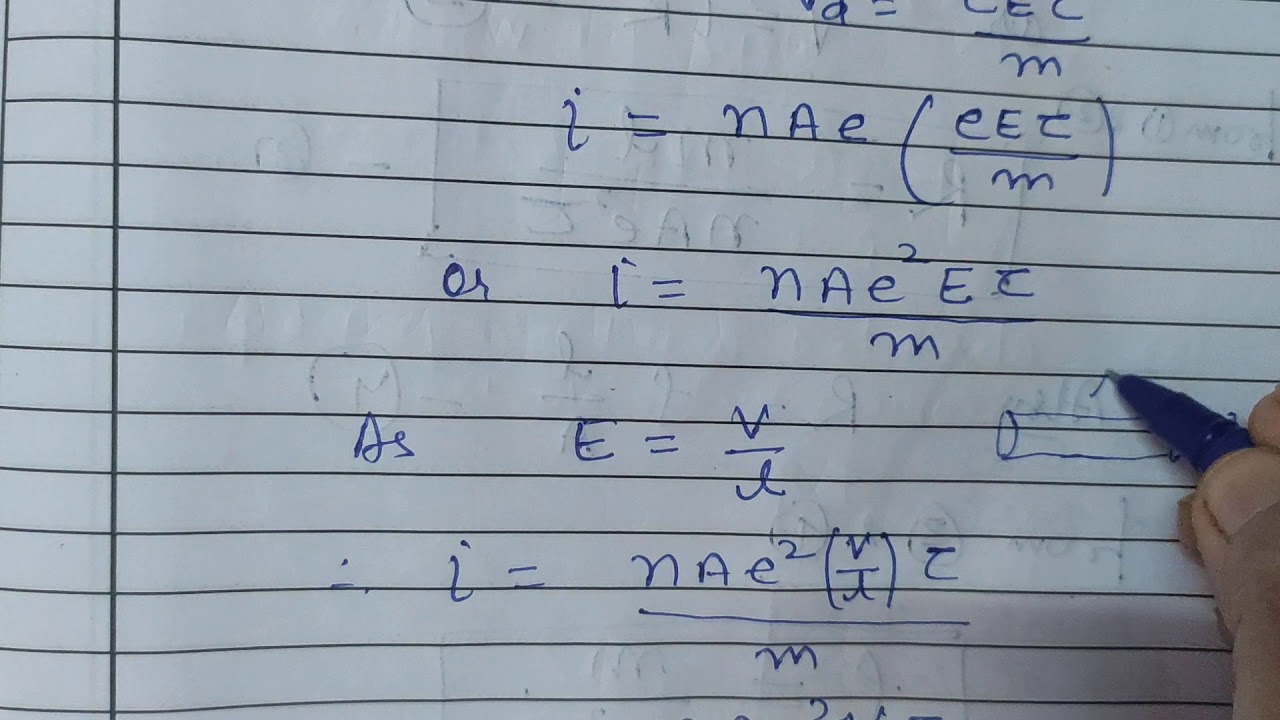 i = nAe (eEτ/m)
or i = nAe²Eτ/m
As E = V/l
∴ i = nAe²(V/l)τ/m